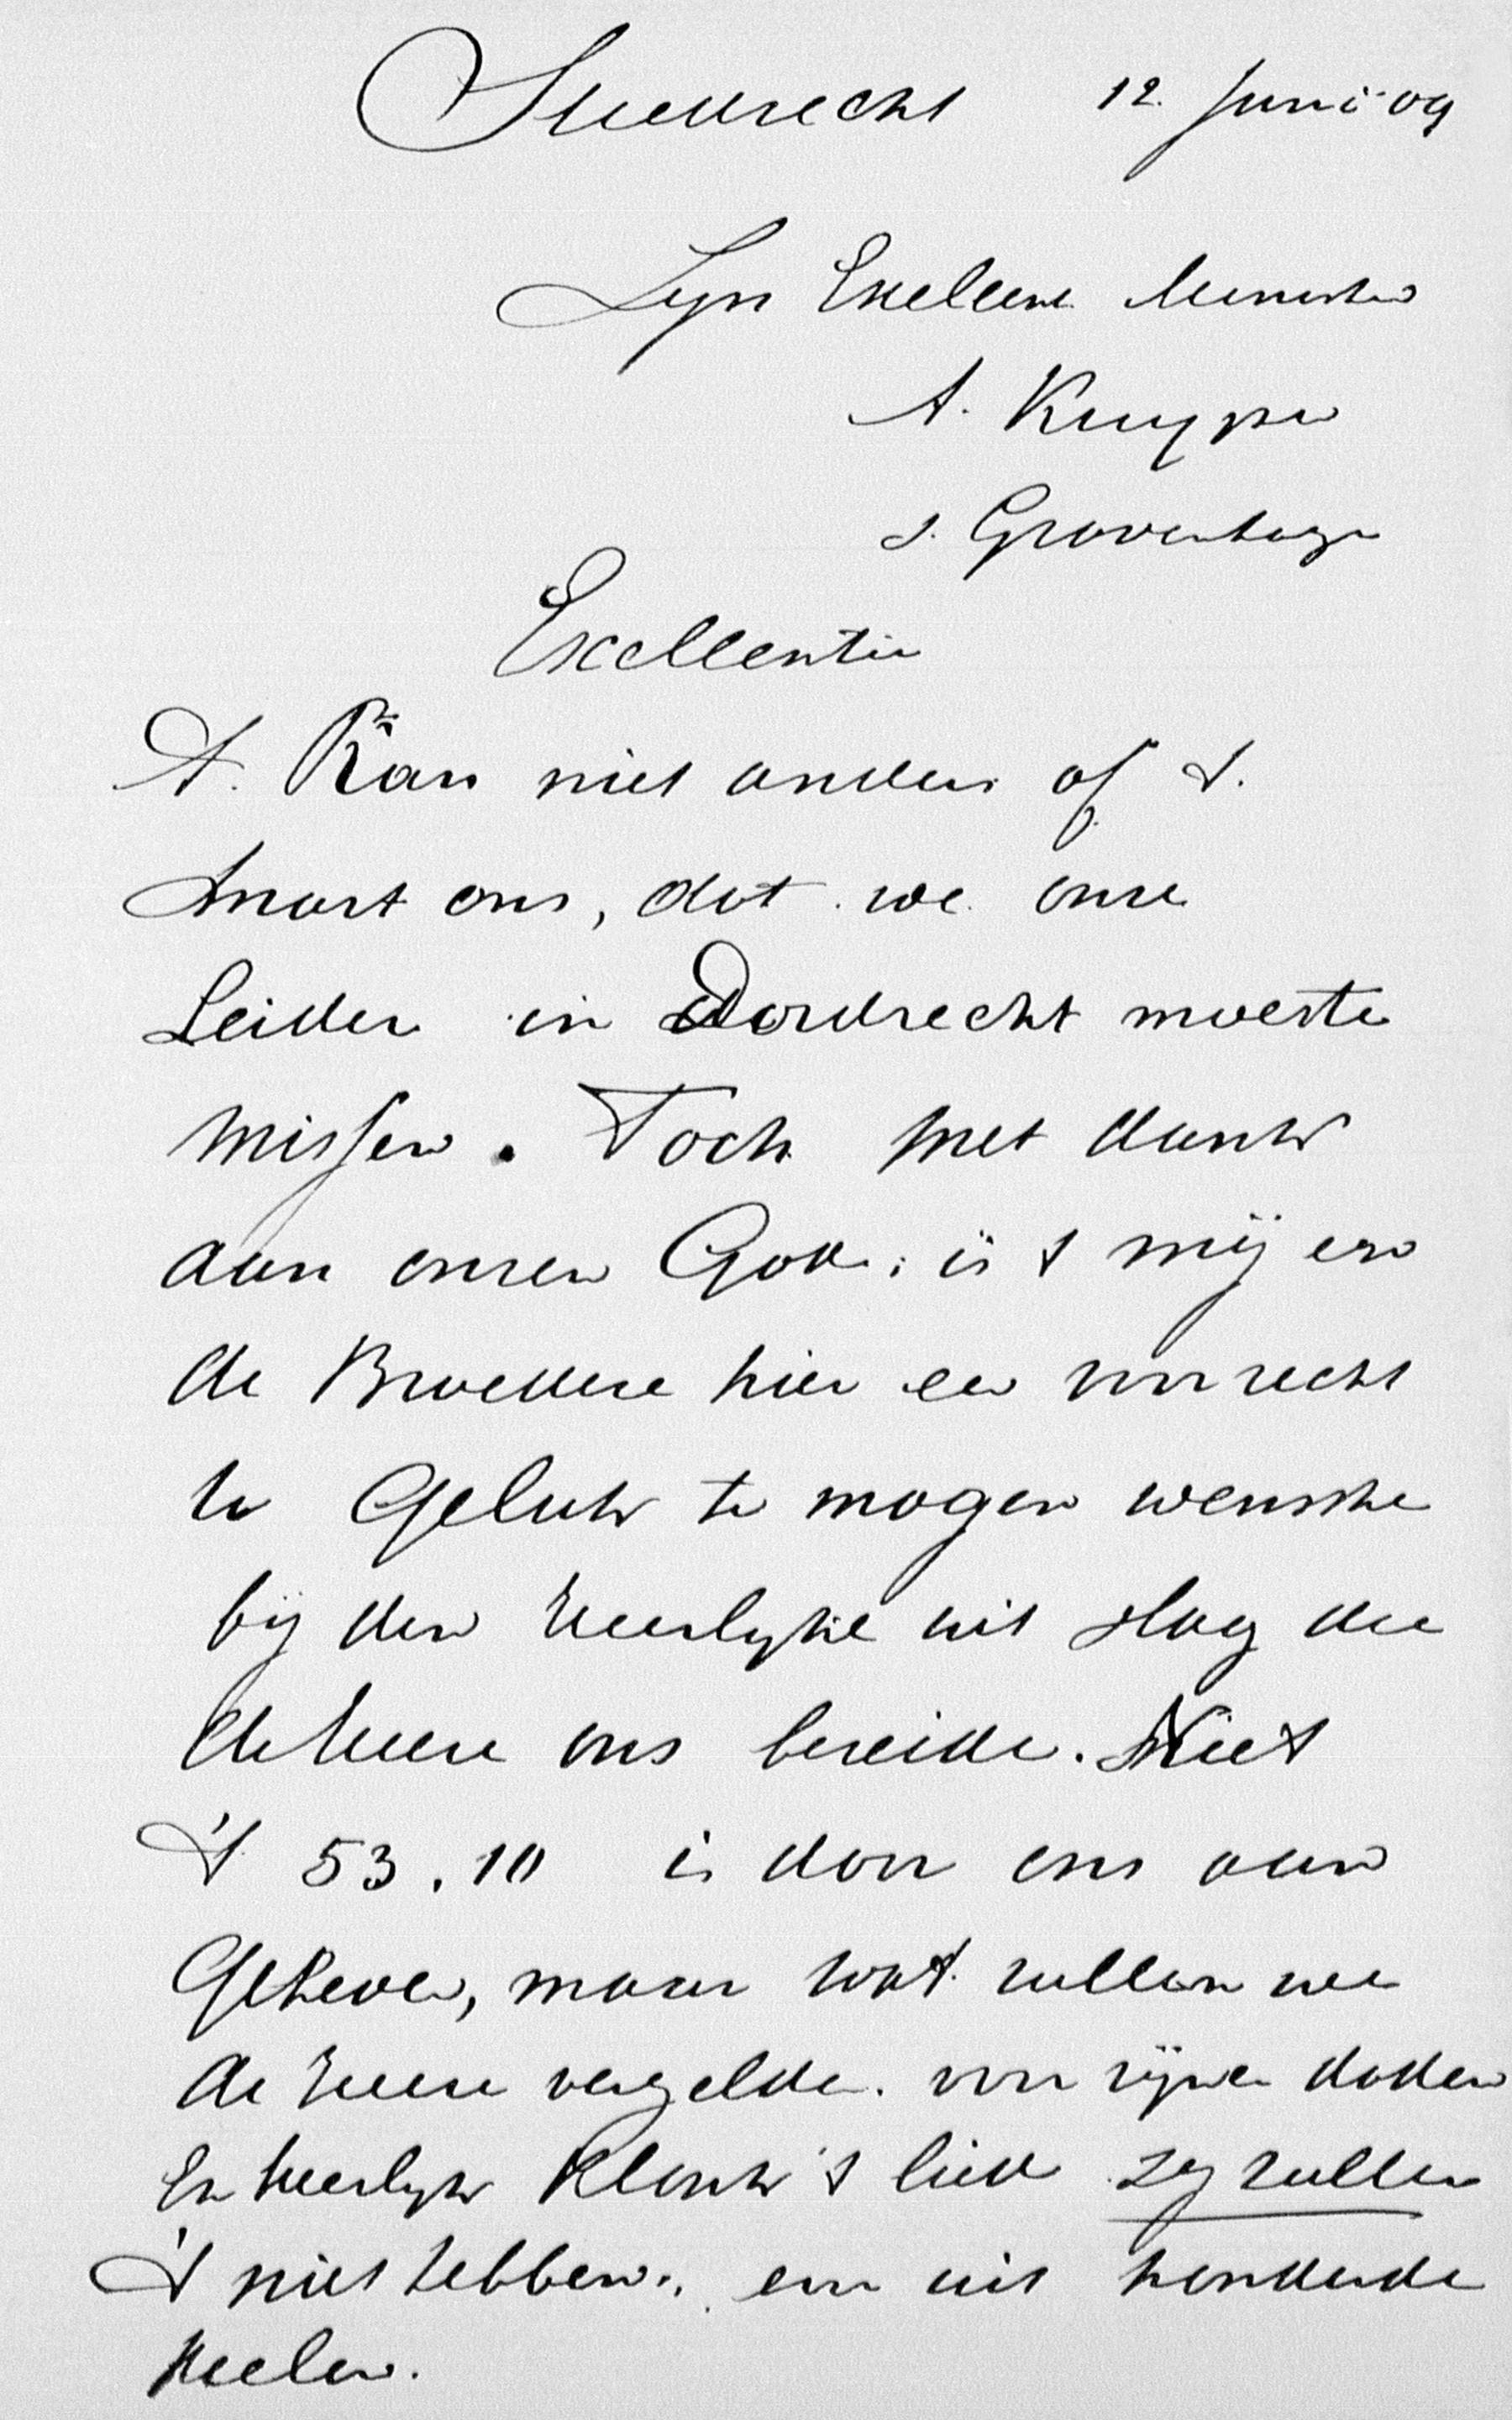 Sliedrecht 12. Juni 09
Zyn Exellent Minister
A. Kuyper
s. Gravenhage
Excellentie
't. Kan niet anders of 't.
smart ons, dat we onze
Leider in Dordrecht moeste
missen. Toch met dank
aan onzen God; is 't mij en
de Broedere hier een voorrecht
U Geluk te mogen wensche
bij den Heerlyke uit slag die
de Heere ons bereide. Niet
't 53.10 is door ons aan
Geheven, maar wat zullen we
de Heere vergelde. voor zijne dadeen
En heerlyk Klonk 't lied zy zullen
't niet hebben., en uit honderde
Keelen.